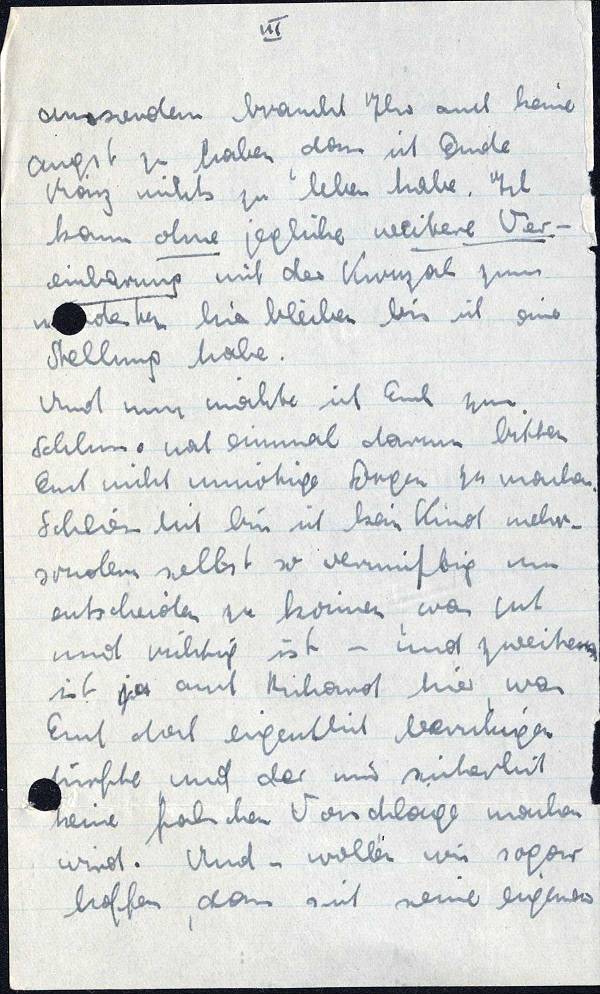 III
ausserdem braucht Ihr auch keine
Angst zu haben dass ich Ende
März nichts zu leben habe. Ich
kann ohne jegliche weitere Ver-
einbarung mit der zum
hier bleiben bis ich eine
Stellung habe.
Und nun möchte ich Euch zum
Schluss noch einmal darum bitten
Euch nicht unnötige Sorgen zu machen.
Schliesslich bin ich kein Kind mehr-
sondern selbst so vernünftig um
entscheiden zu können, was gut
und richtig ist - und zweitens
ist ja auch Richard hier, was
Euch doch eigentlich beruhigen
dürfte und der mir sicherlich
keine falschen Vorschläge machen
wird. Und - wollen wir sogar
hoffen, dass sich seine eigenen